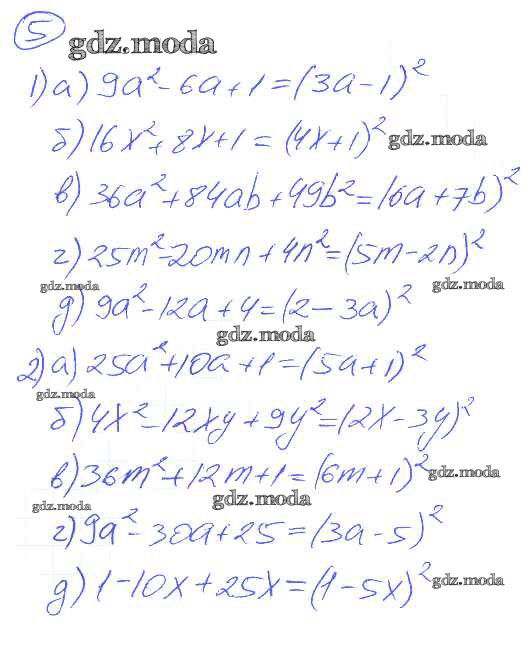 5 gdz.moda
1) а) 9a² - 6a + 1 = (3a - 1)²
б) 16x² + 8x + 1 = (4x + 1)² gdz.moda
в) 36a² + 84ab + 49b² = (6a + 7b)²
г) 25m² - 20mn + 4n² = (5m - 2n)²
gdz.moda gdz.moda
д) 9a² - 12a + 4 = (2 - 3a)²
gdz.moda
2) а) 25a² + 10a + 1 = (5a + 1)²
gdz.moda
б) 4x² - 12xy + 9y² = (2x - 3y)²
в) 36m² + 12m + 1 = (6m + 1)² gdz.moda
gdz.moda gdz.moda
г) 9a² - 30a + 25 = (3a - 5)²
д) 1 - 10x + 25x = (1 - 5x)² gdz.moda